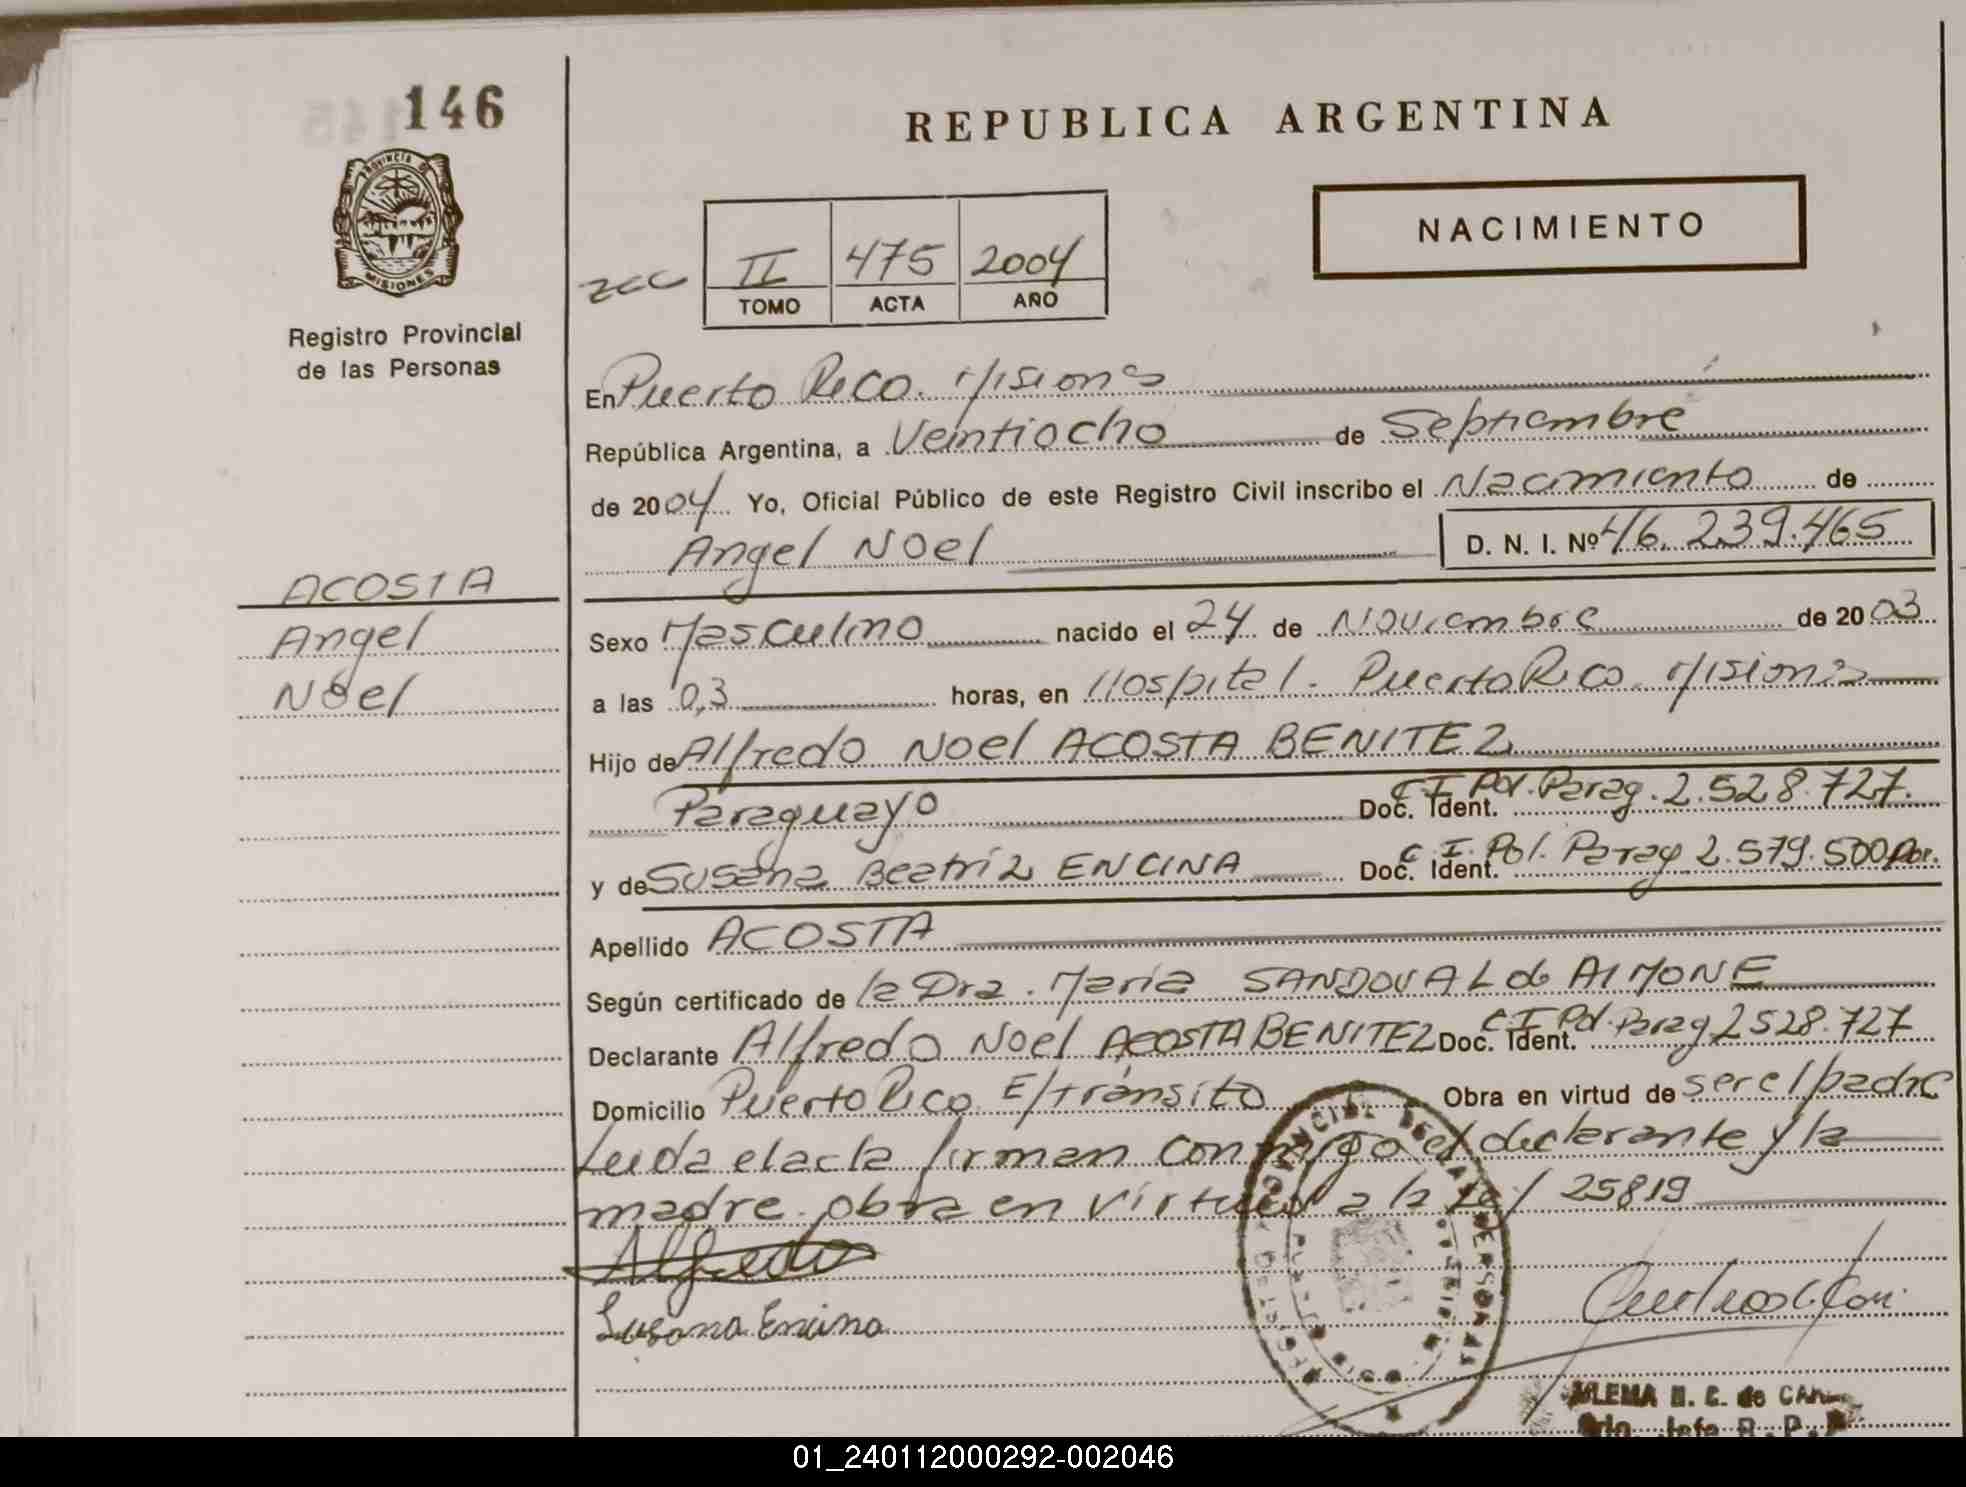 146
PROVINCIA DE
MISIONES
Registro Provincial
de las Personas
ACOSTA
Angel
Noel
REPUBLICA ARGENTINA
NACIMIENTO
II 475 2004
TOMO ACTA AÑO
En Puerto Rico. Misiones
República Argentina, a Veintiocho de Septiembre
de 2004 Yo, Oficial Público de este Registro Civil inscribo el Nacimiento de
Angel Noel D. N. I. Nº 46.239.465
Sexo Masculino nacido el 24 de Noviembre de 2003
a las 0,3 horas, en Hospital. Puerto Rico. Misiones
Hijo de Alfredo Noel ACOSTA BENITEZ
Paraguayo Doc. Ident. C.I. Pol. Parag. 2.528.727.
y de Susana Beatriz ENCINA Doc. Ident. C.I. Pol. Parag 2.579.500 Par.
Apellido ACOSTA
Según certificado de la Dra. María SANDOVAL de AIMONE
Declarante Alfredo Noel ACOSTA BENITEZ Doc. Ident. C.I. Pol. Parag 2528.727
Domicilio Puerto Rico E/tránsito Obra en virtud de ser el padre
Leida el acta firman conmigo el declarante y la
madre. obra en virtud a la ley 25819
Alfredo
Susana Encina
01_240112000292-002046